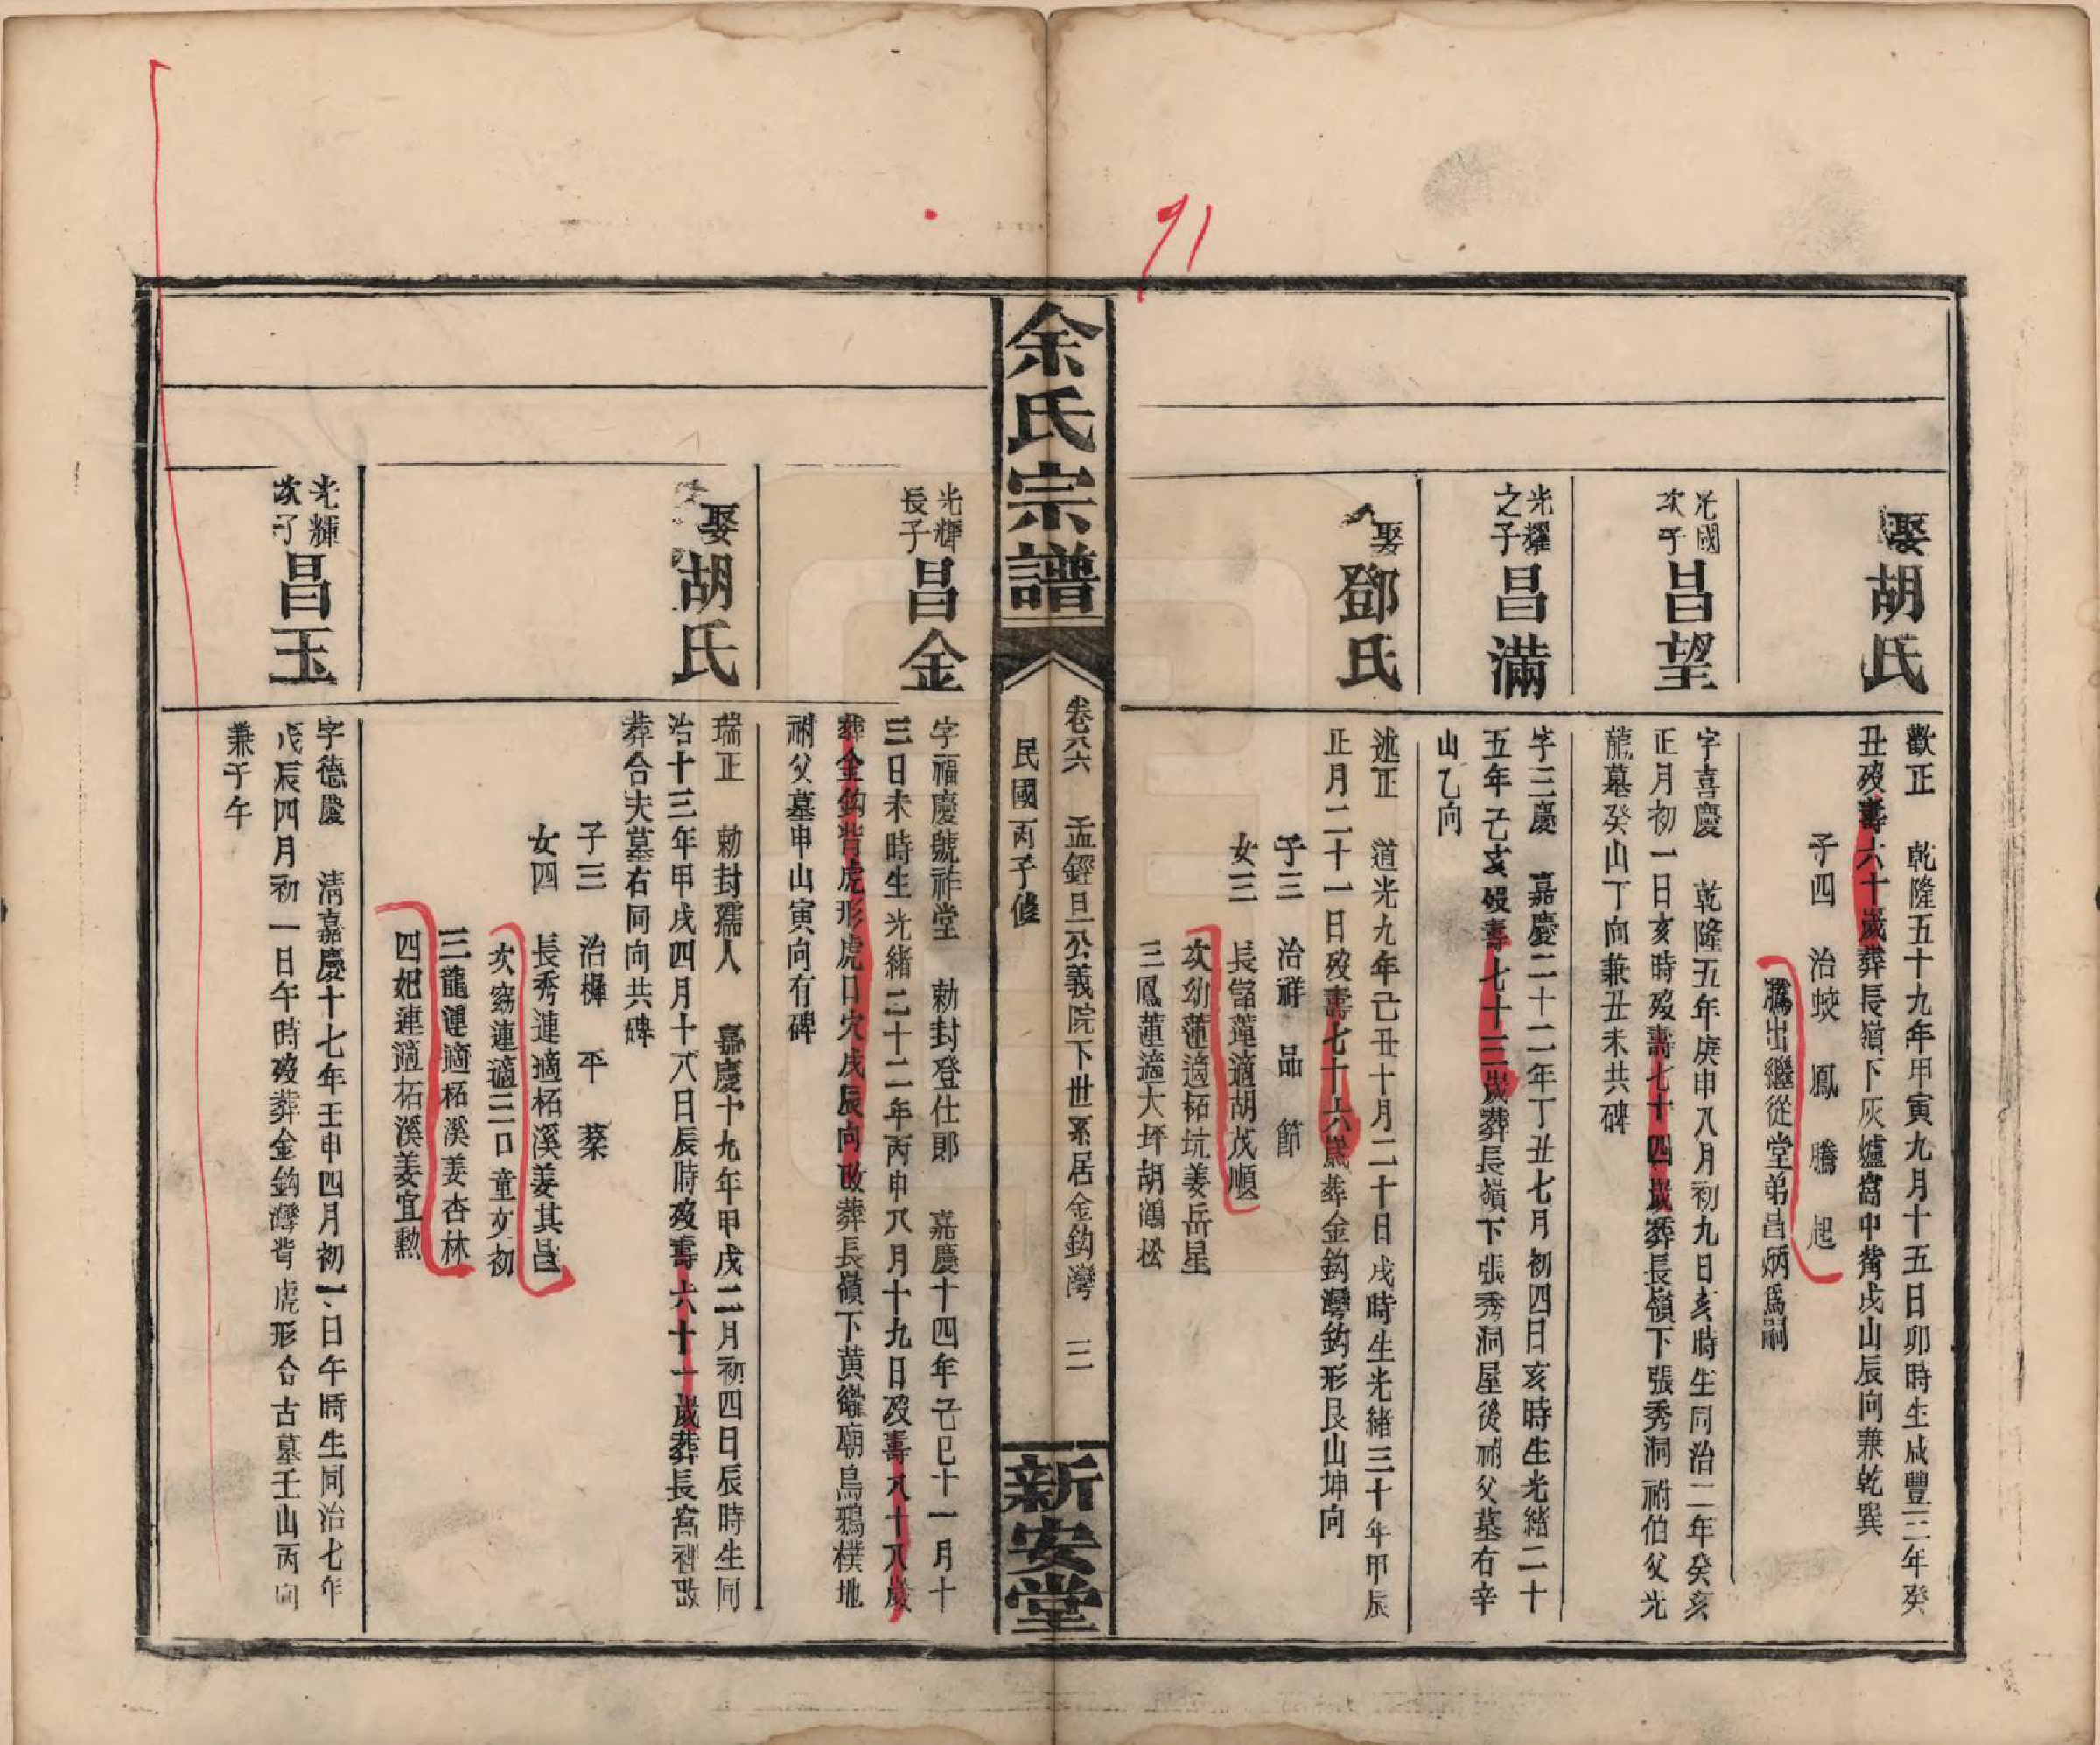 71
娶胡氏
歡正 乾隆五十九年甲寅九月十五日卯時生咸豐三年癸
丑歿壽六十歲葬長嶺下灰爐窩中背戌山辰向兼乾巽
子四 治蛟 鳳 騰 起
騰出繼從堂弟昌炳爲嗣
光國次子昌望
字喜慶 乾隆五年庚申八月初九日亥時生同治二年癸亥
正月初一日亥時歿壽七十四歲葬長嶺下張秀洞祔伯父光
龍墓癸山丁向兼丑未共碑
光耀之子昌滿
字三慶 嘉慶二十二年丁丑七月初四日亥時生光緒二十
五年乙亥歿壽七十三歲葬長嶺下張秀洞屋後祔父墓右辛
山乙向
娶鄧氏
述正 道光九年己丑十月二十日戌時生光緒三十年甲辰
正月二十一日歿壽七十六歲葬金鈎灣鈎形艮山坤向
子三 治祥 品 節
女三 長蓮適胡茂順
次幼蓮適柘坑姜岳星
三鳳蓮適大坪胡鶴松
余氏宗譜
卷六六 孟鎠旦公義院下世系居金鈎灣 三
民國丙子修
新安堂
光輝長子昌金
字福慶號祚堂 勅封登仕郎 嘉慶十四年己巳十一月十
三日未時生光緒二十二年丙申八月十九日歿壽八十八歲
葬金鈎背虎形虎口穴戌辰向改葬長嶺下黃繼廟鳥鴉樸地
祔父墓申山寅向有碑
娶胡氏
瑞正 勅封孺人 嘉慶十九年甲戌二月初四日辰時生同
治十三年甲戌四月十八日辰時歿壽六十一歲葬長窩裡改
葬合夫墓右同向共碑
子三 治樨 平 棻
女四 長秀連適柘溪姜其昌
次窈連適三口童文初
三龍連適柘溪姜杏林
四妃連適柘溪姜宜勲
光輝次子昌玉
字德慶 清嘉慶十七年壬申四月初一日午時生同治七年
戊辰四月初一日午時歿葬金鈎灣背虎形合古墓壬山丙向
兼子午